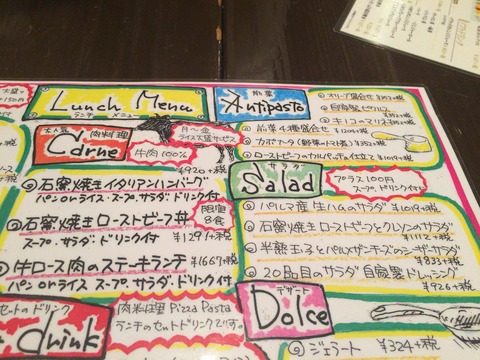 Lunch Menu
ランチ メニュー
大人気
肉料理
Carne
月〜金
ライス大盛サービス
牛肉100%
¥920+税
石窯焼きイタリアンハンバーグ
パン or ライス・スープ・サラダ・ドリンク付
石窯焼きローストビーフ丼
限定
8食
スープ・サラダ・ドリンク付
¥1291+税
牛ロース肉のステーキランチ
¥1667+税
パン or ライス スープ、サラダ、ドリンク付
セットのドリンク
drink
肉料理 Pizza Pasta
ランチのセットドリンクです。
前菜
Antipasto
オリーブ盛合せ ¥352+税
自家製ピクルス
¥352+税
キノコのマリネ
¥352+税
前菜4種盛合せ
¥1204+税
カポナータ(野菜のトマト煮)
¥352+税
ローストビーフのカルパッチョ仕立て ¥1019+税
サラダ
Salad
プラス100円
スープ、ドリンク付
パルマ産 生ハムのサラダ ¥1019+税
石窯焼きローストビーフとクレソンのサラダ
¥1112+税
半熟玉子とパルメザンチーズのシーザーサラダ
¥833+税
20品目のサラダ 自家製ドレッシング
¥926+税
デザート
Dolce
ジェラート ¥324+税